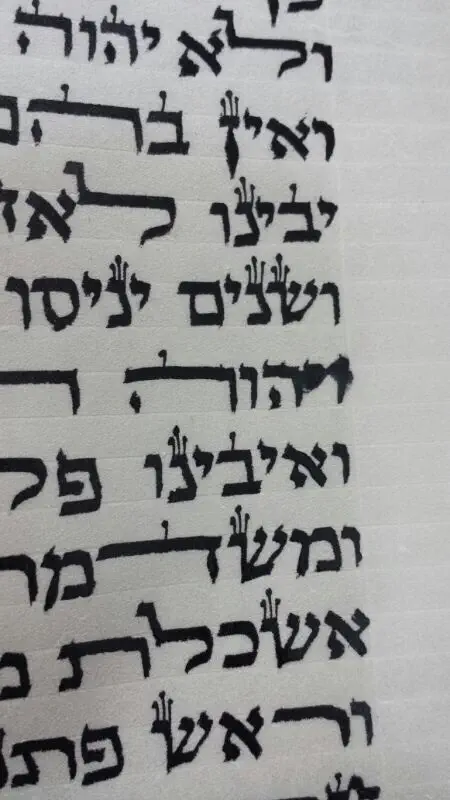 ולא יהוה
ואין בהם
יבינו לאח
ושנים יניסו
ויהוה ה
ואיבינו פל
ומשדמ
אשכלת מ
וראש פתנ